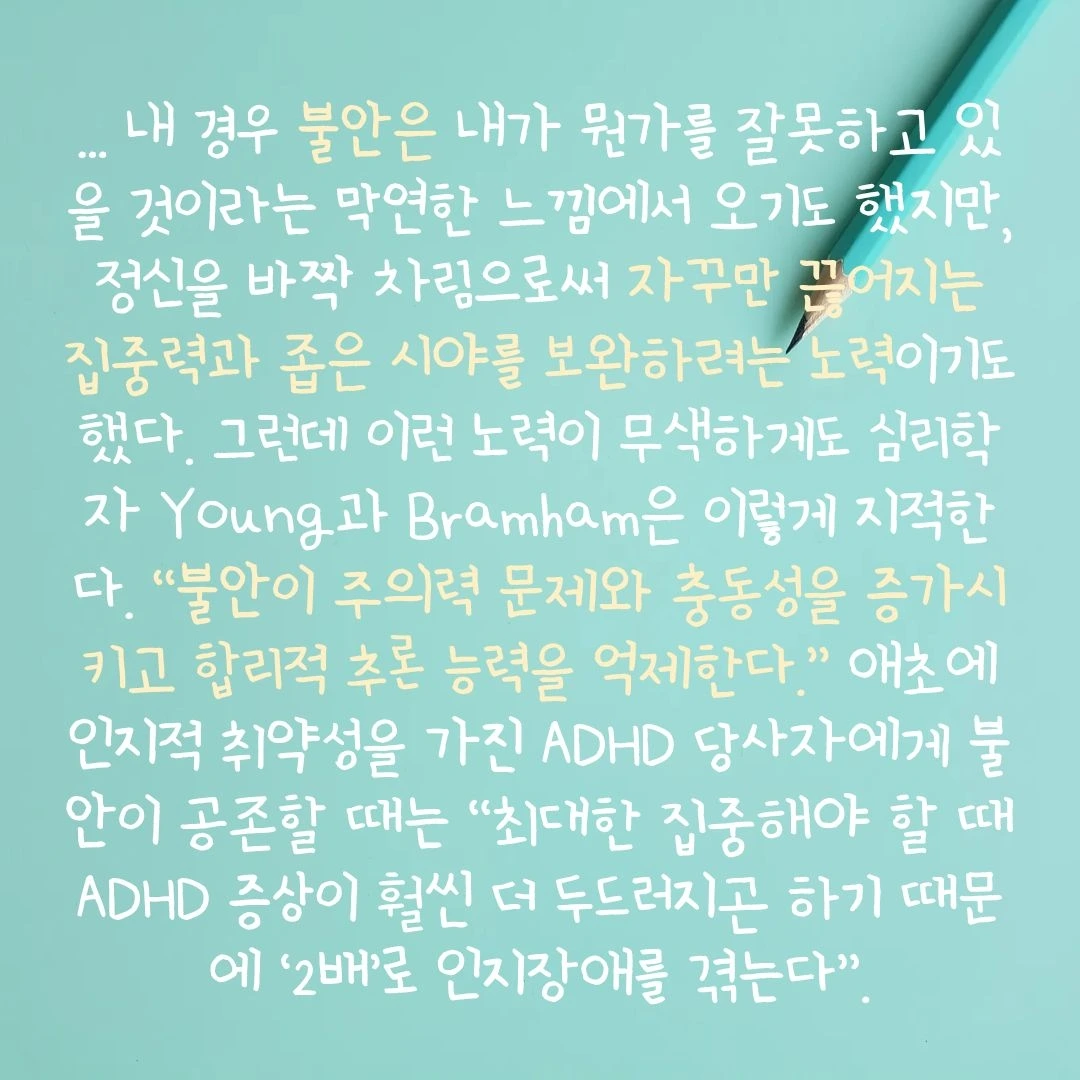 ... 내 경우 불안은 내가 뭔가를 잘못하고 있
을 것이라는 막연한 느낌에서 오기도 했지만,
정신을 바짝 차림으로써 자꾸만 끊어지는
집중력과 좁은 시야를 보완하려는 노력이기도
했다. 그런데 이런 노력이 무색하게도 심리학
자 Young과 Bramham은 이렇게 지적한
다. “불안이 주의력 문제와 충동성을 증가시
키고 합리적 추론 능력을 억제한다.” 애초에
인지적 취약성을 가진 ADHD 당사자에게 불
안이 공존할 때는 “최대한 집중해야 할 때
ADHD 증상이 훨씬 더 두드러지곤 하기 때문
에 ‘2배’로 인지장애를 겪는다”.